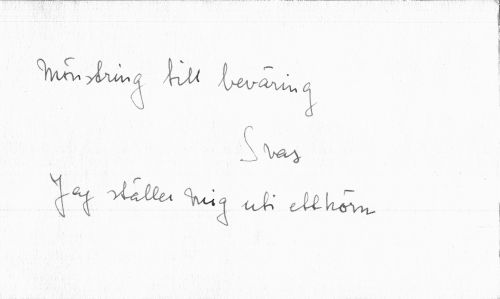 Mönstring till beväring
Svar
Jag ställer mig uti ett hörn